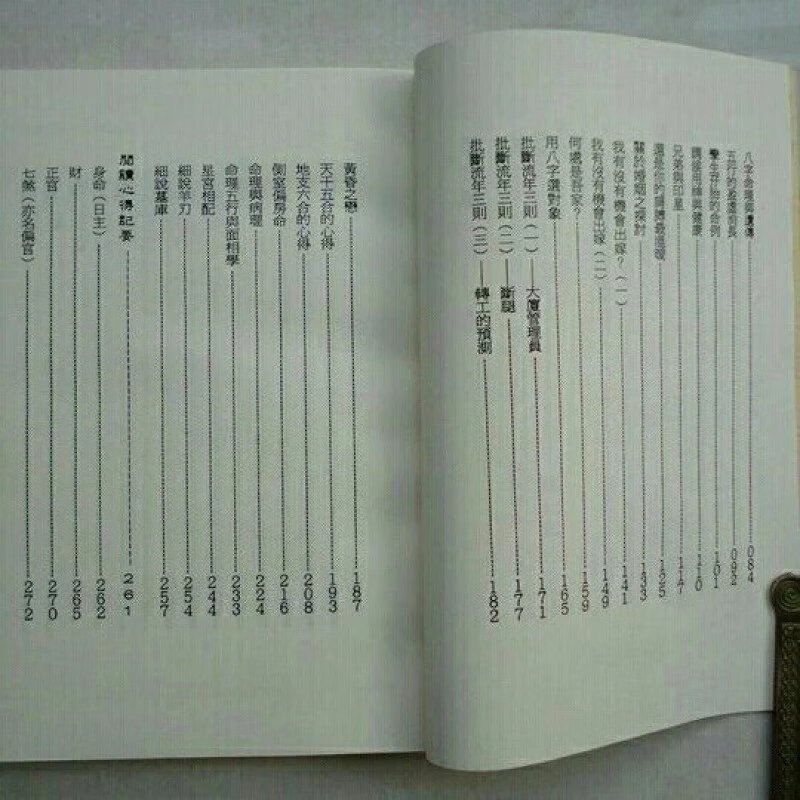 八字命理與遺傳 084
五行的 092
孿生子胎的命例 101
調候用神與健康 110
兄弟與印星 117
還是你的 125
關於婚姻之探討 133
我有沒有機會出嫁？（一） 141
我有沒有機會出嫁（二） 149
何處是吾家？ 159
用八字選對象 165
批斷流年三則（一）—大廈管理員 171
批斷流年三則（二）—斷腿 177
批斷流年三則（三）—轉工的預測 182
黃昏之戀 187
天干五合的心得 193
地支六合的心得 208
側室偏房命 216
命理與病理 224
命理五行與面相學 233
星宮相配 244
細說羊刃 254
細說墓庫 257
閱讀心得記要 261
身命（日主） 262
財 265
正官 270
七煞（亦名偏官） 272